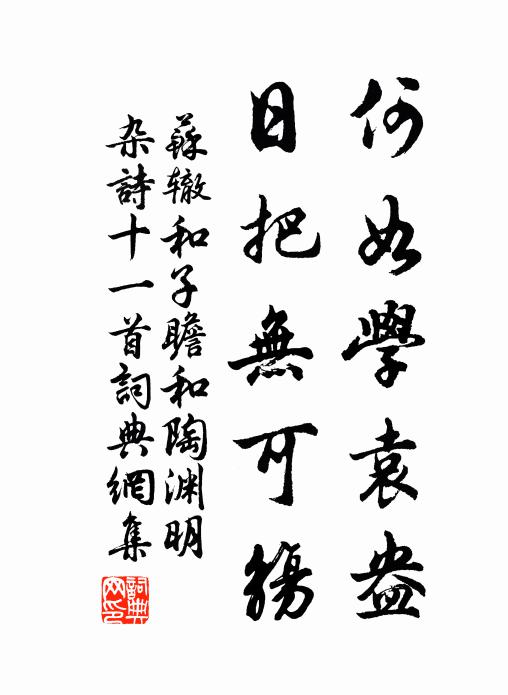 何如學袁盎
日把無可觴
蘇轍和子瞻和陶渊明
杂詩十一首詞典網集
詞典网印